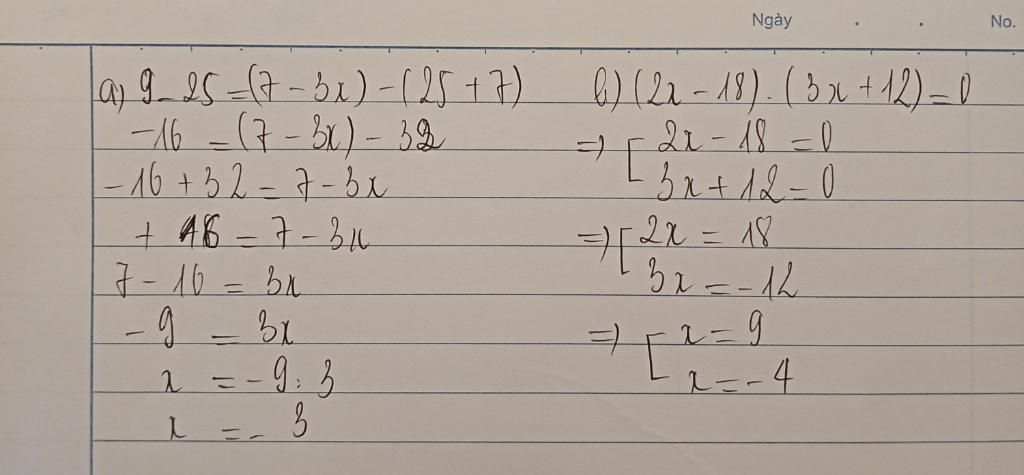 Ngày . . No.
a) 9 - 25 = (7 - 3x) - (25 + 7)
-16 = (7 - 3x) - 32
-16 + 32 = 7 - 3x
+ 16 = 7 - 3x
7 - 16 = 3x
- 9 = 3x
x = -9 : 3
x = - 3
b) (2x - 18) . (3x + 12) = 0
=> [ 2x - 18 = 0
3x + 12 = 0
=> [ 2x = 18
3x = -12
=> [ x = 9
x = - 4